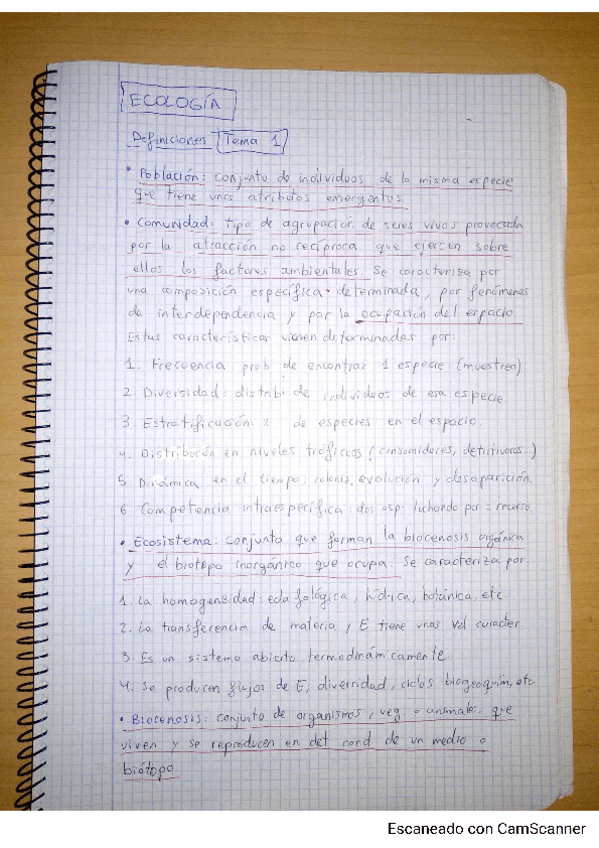 ECOLOGÍA
Definiciones Tema 1
• Población: conjunto de individuos de la misma especie
que tiene unos atributos emergentes.
• Comunidad: tipo de agrupación de seres vivos provocada
por la atracción no recíproca que ejercen sobre
ellos los factores ambientales. Se caracteriza por
una composición específica determinada, por fenómenos
de interdependencia y por la ocupación del espacio
Estas características vienen determinadas por:
1. Frecuencia prob de encontrar 1 especie (muestreo)
2 Diversidad: distribi de individuos de esa especie
3. Estratificación de especies en el espacio.
4. Distribución en niveles tróficos (consumidores, detritívoros.)
5 Dinámica en el tiempo: coloniz, evolución y desaparición.
6 Competencia intraespecífica: dos esp. luchando por = recurso
• Ecosistema: conjunto que forman la biocenosis orgánica
y el biotopo inorgánico que ocupa. Se caracteriza por
1. La homogeneidad: edafológica, hídrica, botánica, etc.
2. La transferencia de materia y E tiene unas vel caracter.
3. Es un sistema abierto termodinámicamente
4. Se producen flujos de E, diversidad, ciclos biogeoquím, etc
• Biocenosis: conjunto de organismos, veg. o animales que
viven y se reproducen en det cond de un medio o
biótopo
Escaneado con CamScanner